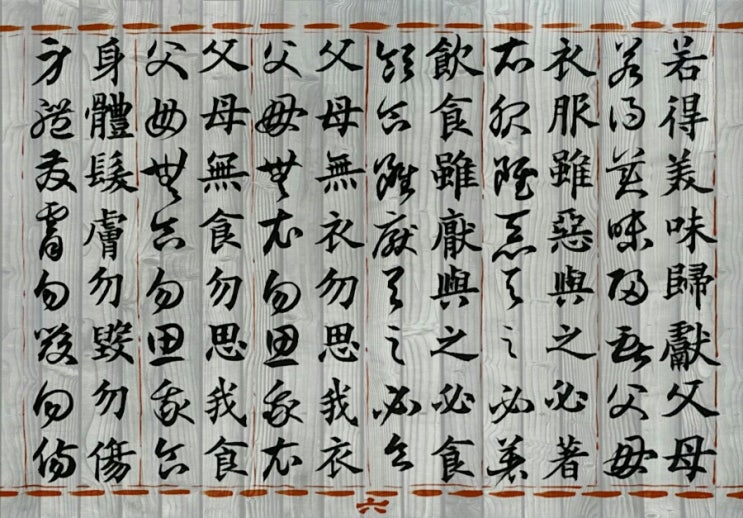 若得美味歸獻父母
若得美味歸獻父母
衣服雖惡與之必著
衣服雖惡與之必著
飲食雖厭與之必食
飲食雖厭與之必食
父母無衣勿思我衣
父母無衣勿思我衣
父母無食勿思我食
父母無食勿思我食
身體髮膚勿毀勿傷
身體髮膚勿毀勿傷
六